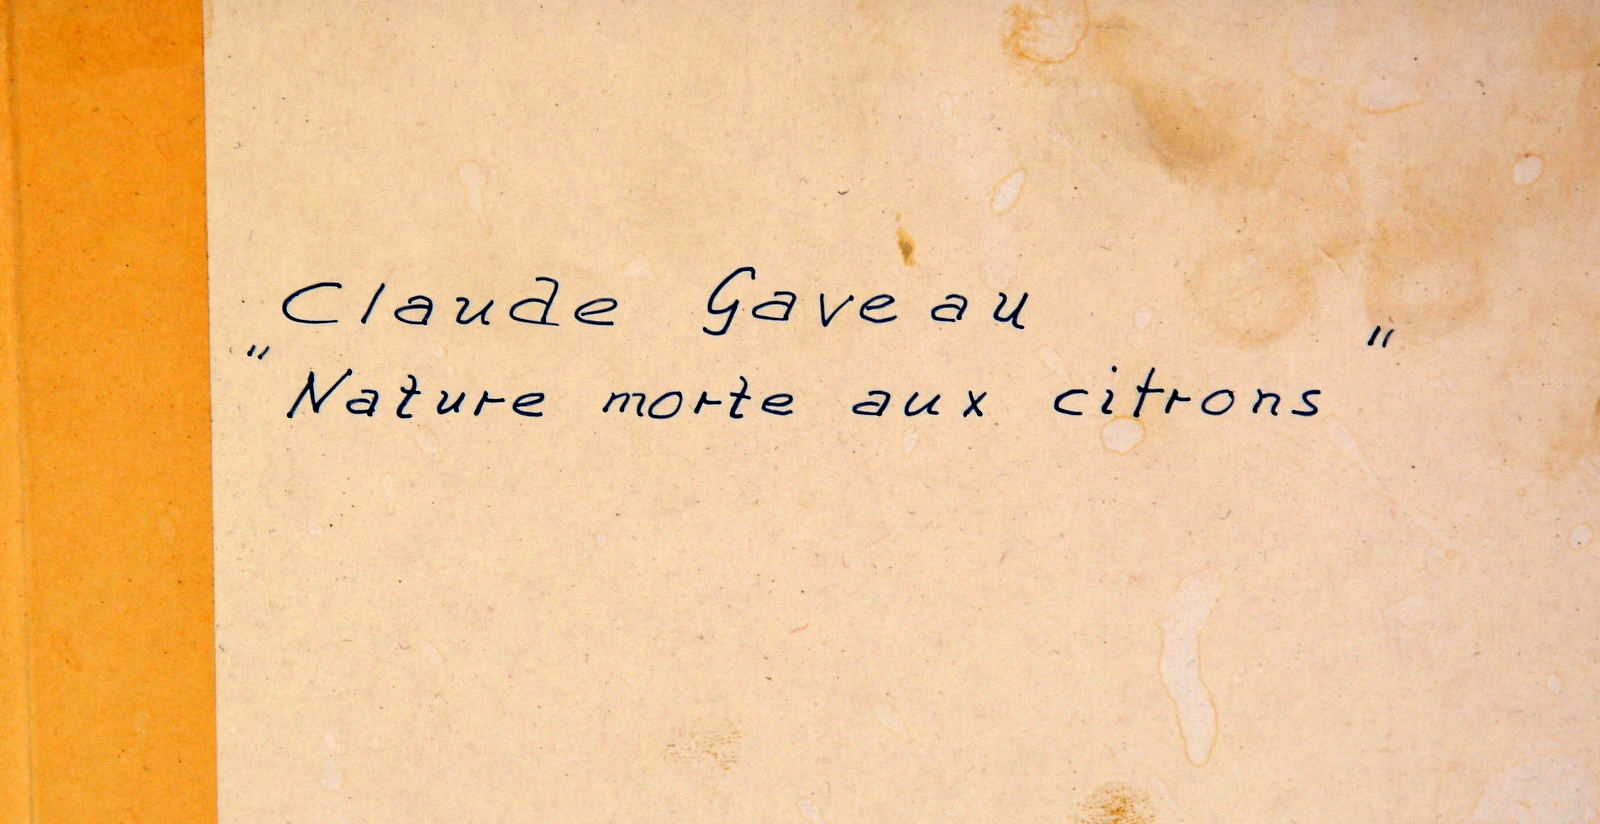 Claude Gaveau
"Nature morte aux citrons"